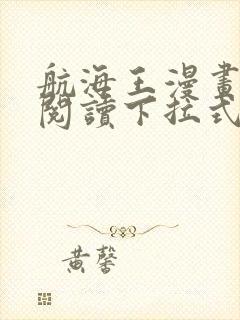 航海王漫畫
閱讀下拉式
黄馨